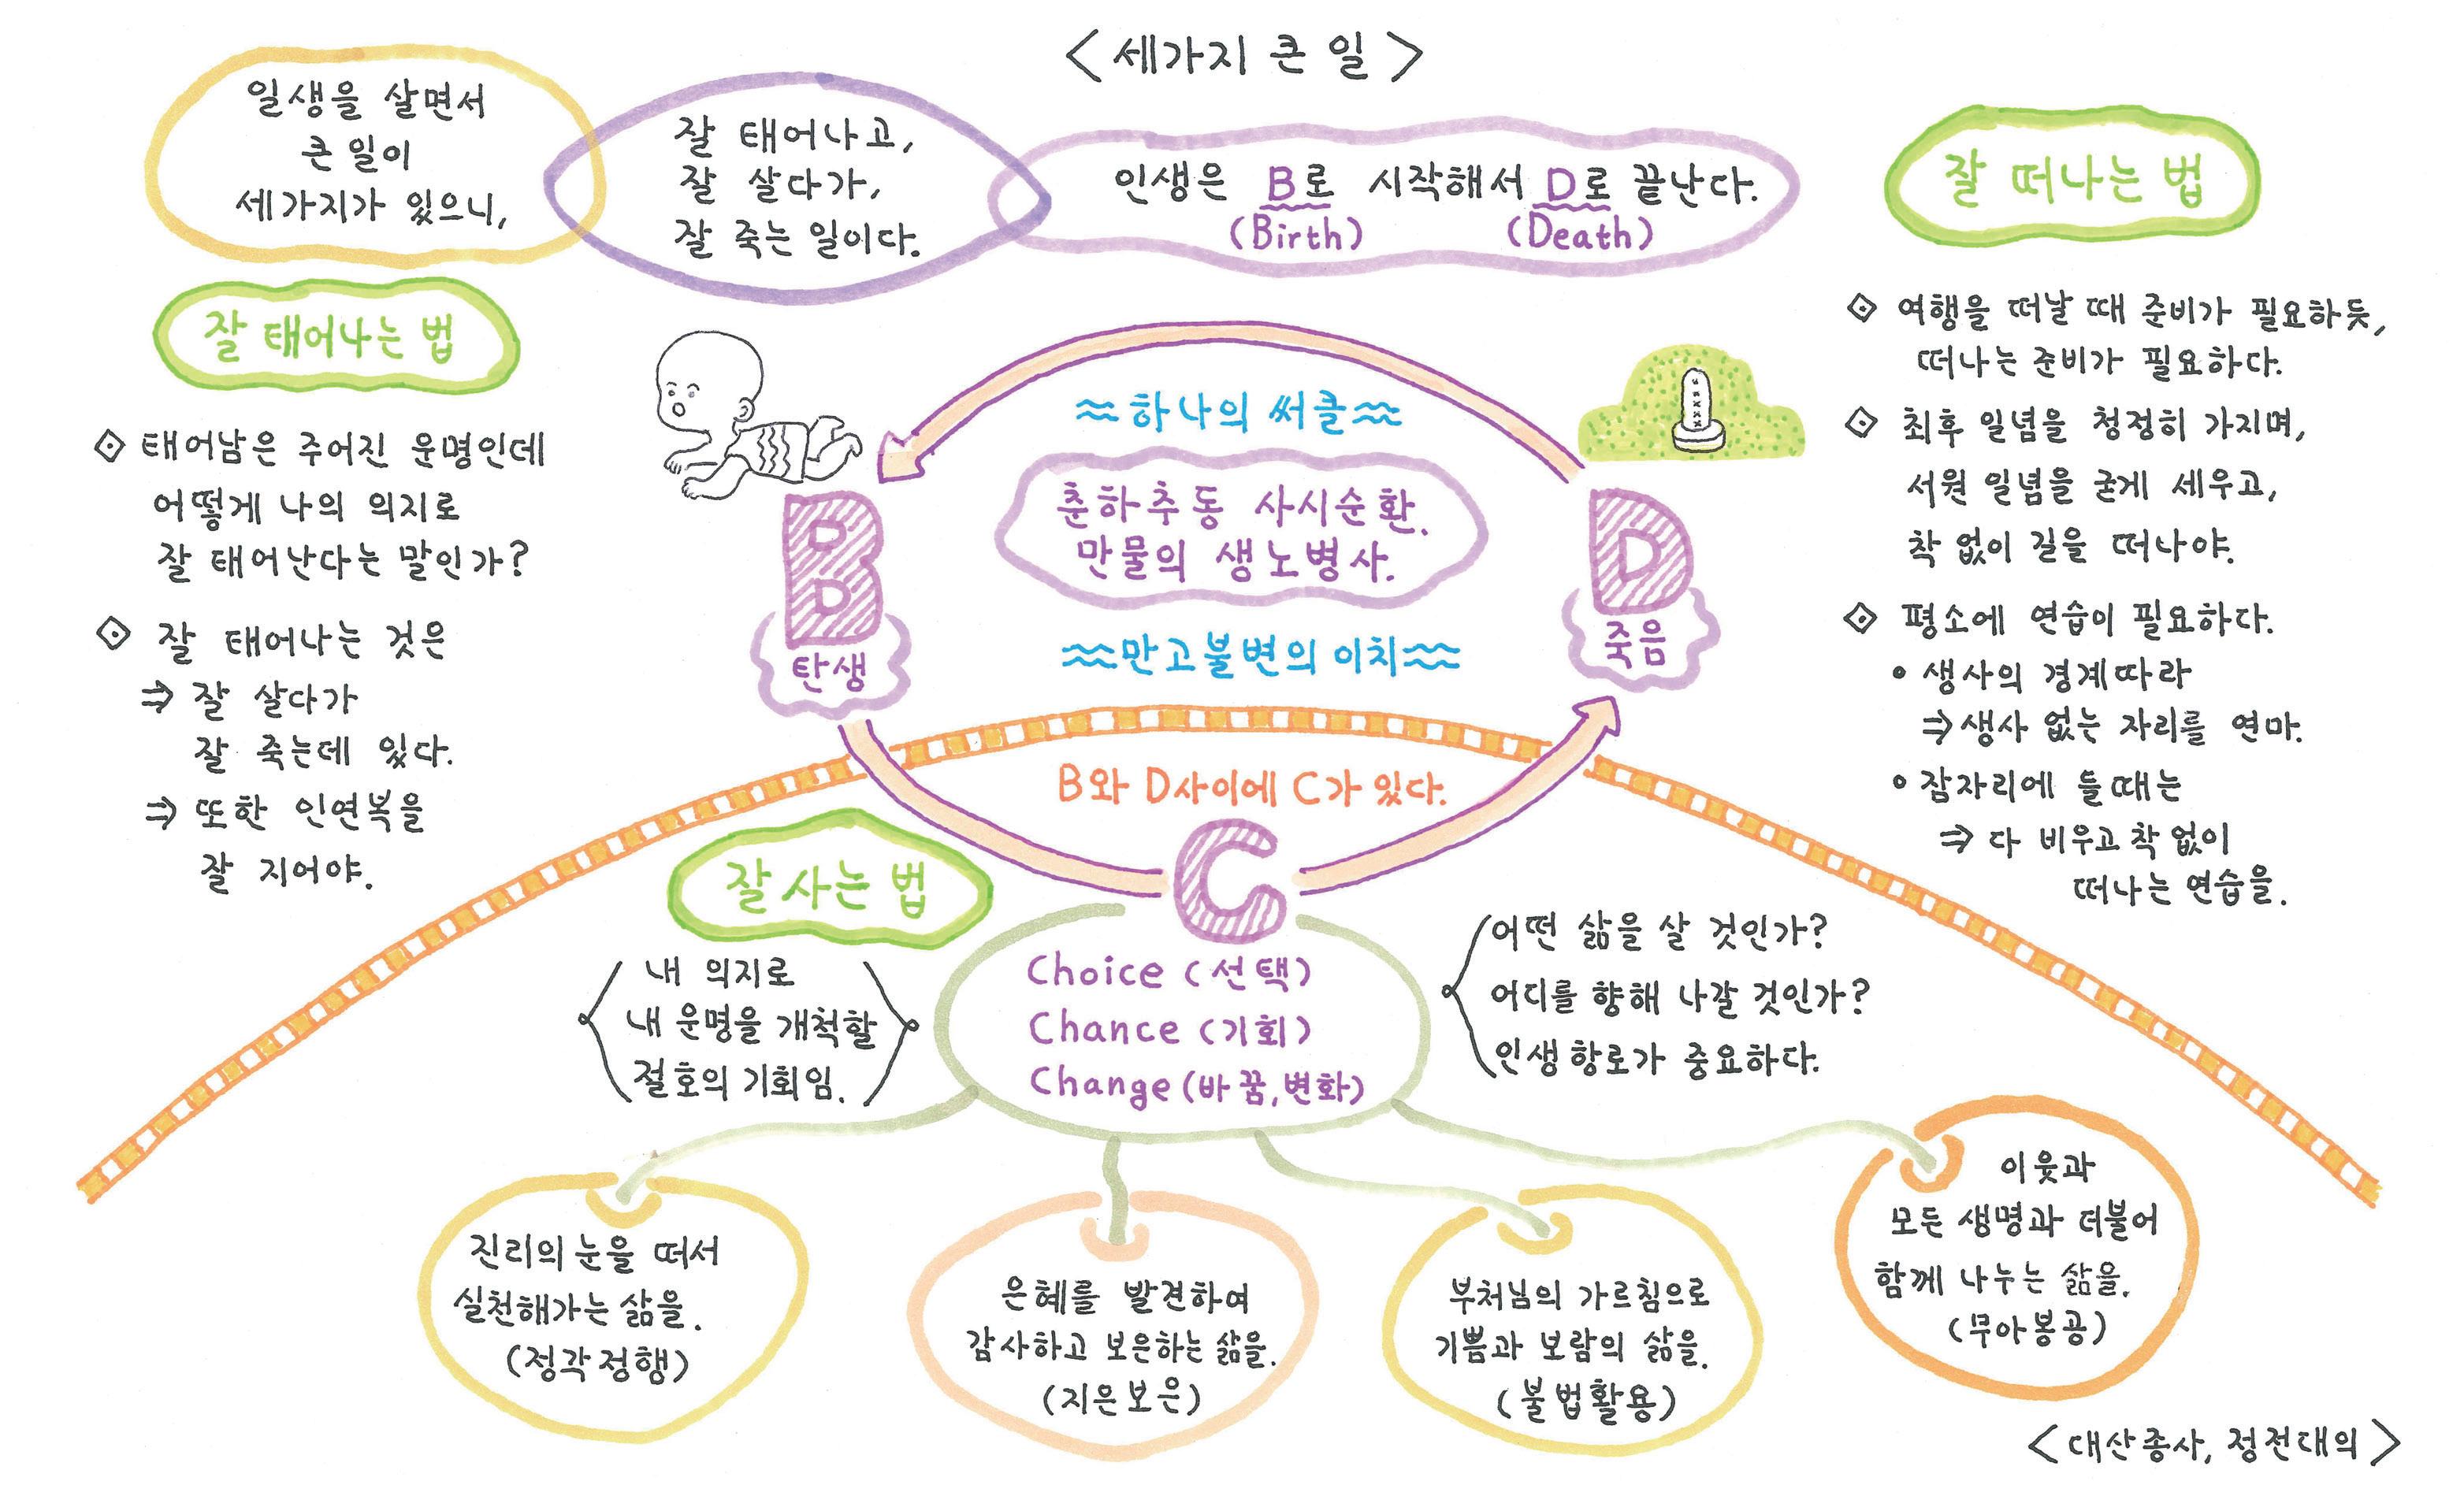 <세가지 큰 일>
일생을 살면서
큰 일이
세가지가 있으니,
잘 태어나고,
잘 살다가,
잘 죽는 일이다.
인생은 B로 시작해서 D로 끝난다.
(Birth) (Death)
잘 태어나는 법
◇ 태어남은 주어진 운명인데
어떻게 나의 의지로
잘 태어난다는 말인가?
◇ 잘 태어나는 것은
⇒ 잘 살다가
잘 죽는데 있다.
⇒ 또한 인연복을
잘 지어야.
≈하나의 써클≈
춘하추동 사시순환.
만물의 생노병사.
≈만고불변의 이치≈
B
탄생
D
죽음
B와 D사이에 C가 있다.
C
잘 떠나는 법
◇ 여행을 떠날 때 준비가 필요하듯,
떠나는 준비가 필요하다.
◇ 최후 일념을 청정히 가지며,
서원 일념을 굳게 세우고,
착 없이 길을 떠나야.
◇ 평소에 연습이 필요하다.
• 생사의 경계따라
⇒생사 없는 자리를 연마.
• 잠자리에 들때는
⇒ 다 비우고 착 없이
떠나는 연습을.
잘 사는 법
내 의지로
내 운명을 개척할
절호의 기회임.
Choice (선택)
Chance (기회)
Change (바꿈, 변화)
어떤 삶을 살 것인가?
어디를 향해 나갈 것인가?
인생항로가 중요하다.
진리의 눈을 떠서
실천해가는 삶을.
(정각정행)
은혜를 발견하여
감사하고 보은하는 삶을.
(지은보은)
부처님의 가르침으로
기쁨과 보람의 삶을.
(불법활용)
이웃과
모든 생명과 더불어
함께 나누는 삶을.
(무아봉공)
<대산종사, 정전대의>